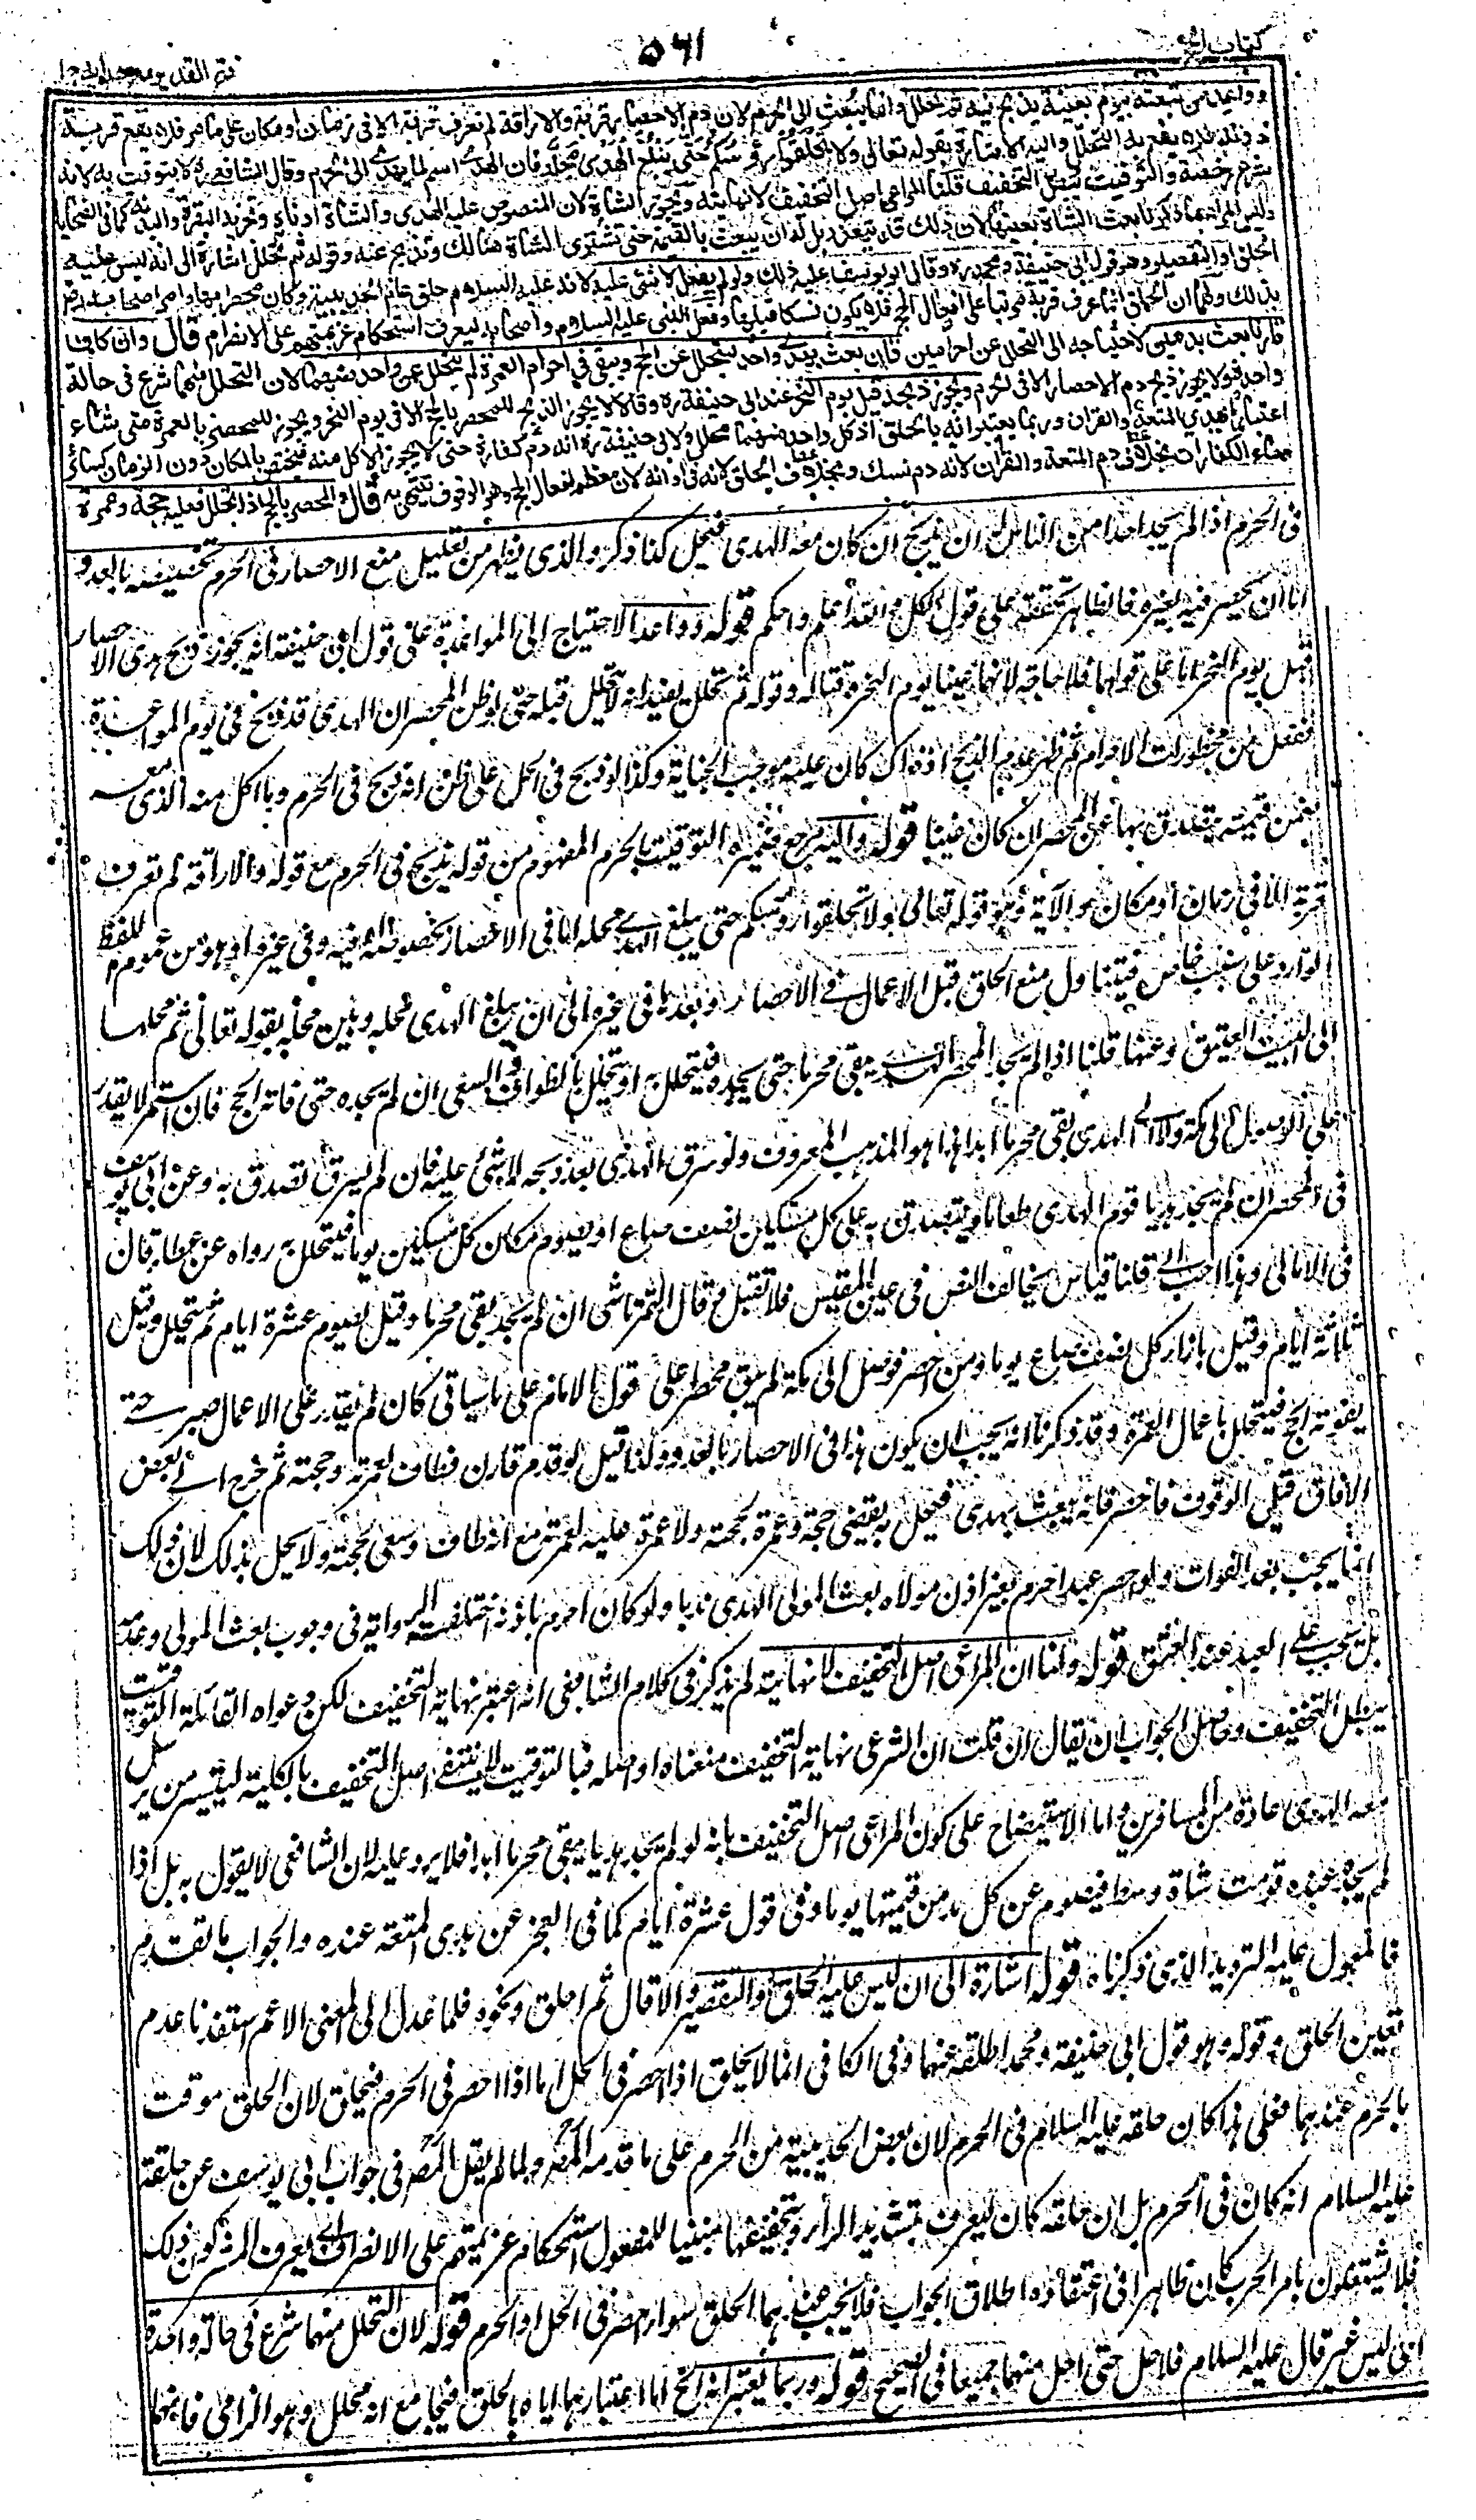 كتاب الحج
٥٤١
فتح القدير مع هداية ج ا
وواعد من تبعثه بيوم بعينه يذبح فيه ثم تحلل وانما يبعث الى الحرم لان دم الاحصار قربة والاراقة لم تعرف قربة الا فى زمان او مكان على ما مر فلا يقع قربة
دونه فلا يقع به التحلل واليه الاشارة بقوله تعالى ولا تحلقوا رؤسكم حتى يبلغ الهدى محله فان الهدى اسم لما يهدى الى الحرم وقال الشافعى ره لا يتوقت به لانه
شرع رخصة والتوقيت يبطل التخفيف قلنا المراعى اصل التخفيف لا نهايته ويجوز الشاة لان المنصوص عليه الهدى والشاة ادناه وتجزيه البقرة والبدنة كما فى الضحايا
وليس المراد بما ذكرنا بعث الشاة بعينها لان ذلك قد يتعذر بل له ان يبعث بالقيمة حتى تشترى الشاة هنالك وتذبح عنه وقوله ثم تحلل اشارة الى انه ليس عليه
الحلق او التقصير وهو قول ابى حنيفة ومحمد ره وقال ابو يوسف عليه ذلك ولو لم يفعل لا شئ عليه لانه عليه السلام حلق عام الحديبية وكان محصرا بها وامر اصحابه رض
بذلك ولهما ان الحلق انما عرف قربة مرتبا على افعال الحج فلا يكون نسكا قبلها وفعل النبى عليه السلام واصحابه ليعرف استحكام عزيمتهم على الانصراف قال وان كان
قارنا بعث بدمين لاحتياجه الى التحلل عن احرامين فان بعث بهدى واحد ليتحلل عن الحج ويبقى فى احرام العمرة لم يتحلل عن واحد منهما لان التحلل منهما شرع فى حالة
واحدة ولا يجوز ذبح دم الاحصار الا فى الحرم ويجوز ذبحه قبل يوم النحر عند ابى حنيفة ره وقالا لا يجوز الذبح للمحصر بالحج الا فى يوم النحر ويجوز للمحصر بالعمرة متى شاء
اعتبارا بهدى المتعة والقران وربما يعتبرانه بالحلق اذ كل واحد منهما محلل ولابى حنيفة ره انه دم كفارة حتى لا يجوز الاكل منه فيختص بالمكان دون الزمان كسائر
دماء الكفارات بخلاف دم المتعة والقران لانه دم نسك وبخلاف الحلق لانه فى اوانه لان معظم افعال الحج وهو الوقوف ينتهى به قال والمحصر بالحج اذا تحلل فعليه حجة وعمرة
فى الحرم اذا لم يجد احدا من الناس له ان يذبح ان كان معه الهدى فيحل كذا ذكر والذى يظهر من تعليل منع الاحصار فى الحرم تخصيصه بالعدو
اما ان احصر فيه بغيره فالظاهر تحققه على قول الكل والله اعلم واحكم قوله وواعد الاحتياج الى المواعدة على قول ابى حنيفة انه يجوز ذبح هدى الاحصار
قبل يوم النحر اما على قولهما فلا حاجة لانهما عينا يوم النحر وقتا له وقوله ثم تحلل يفيد انه لا يتحلل قبله حتى لو ظن المحصر ان الهدى قد ذبح فى يوم المواعدة
ففعل من محظورات الاحرام ثم ظهر عدم الذبح اذ ذاك كان عليه موجب الجناية وكذا لو ذبح فى الحل على ظن انه ذبح فى الحرم وما اكل منه الذى معه
ضمن قيمته يتصدق بها عن المحصر ان كان غنيا قوله واليه مرجع ضميره التوقيت بالحرم المفهوم من قوله يذبح فى الحرم مع قوله والاراقة لم تعرف
قربة الا فى زمان او مكان والآية وهو قوله تعالى ولا تحلقوا رؤسكم حتى يبلغ الهدى محله اما فى الاحصار بخصوصه او فيه وفى غيره او هو من عموم اللفظ
الوارد على سبب خاص فيتناول منع الحلق قبل الاعمال فى الاحصار وبعدها فى غيره الى ان يبلغ الهدى محله وبين محله بقوله تعالى ثم محلها
الى البيت العتيق وعنها قلنا اذا لم يجد المحصر الهدى بقى محرما حتى يجده فيتحلل به او يتحلل بالطواف والسعى ان لم يجده حتى فاته الحج فان استمر لا يقدر
على الوصول الى مكة ولا الى الهدى بقى محرما ابدا هذا هو المذهب المعروف ولو سرق الهدى بعد ذبحه لا شئ عليه فان لم يسرق تصدق به وعن ابى يوسف
فى المحصر ان لم يجد هديا قوم الهدى طعاما ويتصدق به على كل مسكين نصف صاع او يصوم مكان كل مسكين يوما فيتحلل به رواه عن عطاء قال
فى الامالى وهذا احب الى قلنا قياس يخالف النص فى عين المقيس فلا تقبل وقال التمرتاشى ان لم يجد بقى محرما وقيل يصوم عشرة ايام ثم يتحلل وقيل
ثلاثة ايام وقيل بازاء كل نصف صاع يوما ومن احصر فوصل الى مكة لم يبق محصرا على قول الامام على ما سياتى كان لم يقدر على الاعمال صبر حتى
يفوته الحج فيتحلل باعمال العمرة وقد ذكرنا انه يجب ان يكون هذا فى الاحصار بالعدو ولذا قيل لو قدم قارن فطاف لعمرته وحجته ثم خرج الى بعض
الآفاق قبل الوقوف فاحصر فانه يبعث بهدى فيحل به يقضى حجة وعمرة بحجته ولا عمرة عليه لعمرته مع انه طاف وسعى لحجته ولا يحل بذلك لان ذلك
انما يجب بعد الفوات ولو احصر عبد احرم بغير اذن مولاه بعث المولى الهدى ندبا ولو كان احرم باذنه اختلفت الرواية فى وجوب بعث المولى وعدمه
بل يجب على العبد عند العتق قوله ولنا ان المراعى اصل التخفيف لا نهايته لم يذكر فى كلام الشافعى انه اعتبر نهاية التخفيف لكن دعواه القائلة التوقيت
يبطل التخفيف وحاصل الجواب ان يقال ان قلت ان الشرعى نهاية التخفيف منعناه او اصله فبالتوقيت لا ينتفى اصل التخفيف بالكلية لتيسير من يرسل
معه الهدى عادة من المسافرين واما الاستيضاح على كون المراعى اصل التخفيف بانه لو لم يجد هديا يبقى محرما ابدا فلا يرد عليه لان الشافعى لا يقول به بل اذا
لم يجد عنده قومت شاة وسط فيصوم عن كل مد من قيمتها يوما وفى قول عشرة ايام كما فى العجز عن هدى المتعة عنده والجواب ما تقدم
فالمعول عليه الترديد الذى ذكرناه قوله اشارة الى ان ليس عليه الحلق والتقصير والا قال ثم احلق ونحوه فلما عدل الى المعنى الاعم استفدنا عدم
تعيين الحلق وقوله وهو قول ابى حنيفة ومحمد اطلقه عنهما وفى الكافى انما لا يحلق اذا احصر فى الحل اما اذا احصر فى الحرم فيحلق لان الحلق موقت
بالحرم عندهما فعلى هذا كان حلقه عليه السلام فى الحرم لان بعض الحديبية من الحرم على ما قدمه المص ولما لم يقل المص فى جواب ابى يوسف عن حلقه
عليه السلام انه كان فى الحرم بل ان حلقه كان ليعرف بتشديد الراء وتخفيفها مبنيا للمفعول استحكام عزيمتهم على الانصراف اى يعرف المشركون ذلك
فلا يشتغلون بامر الحرب كان ظاهرا فى اعتقاده اطلاق الجواب فلا يجب عندهما الحلق سواء احصر فى الحل او الحرم قوله لان التحلل منهما شرع فى حالة واحدة
اى ليس غير قال عليه السلام فلا احل حتى احل منهما جميعا فى الصحيح قوله وربما يعتبرانه الخ اما اعتبارهما اياه بالحلق فبجامع انه محلل وهو الزامى فانهما